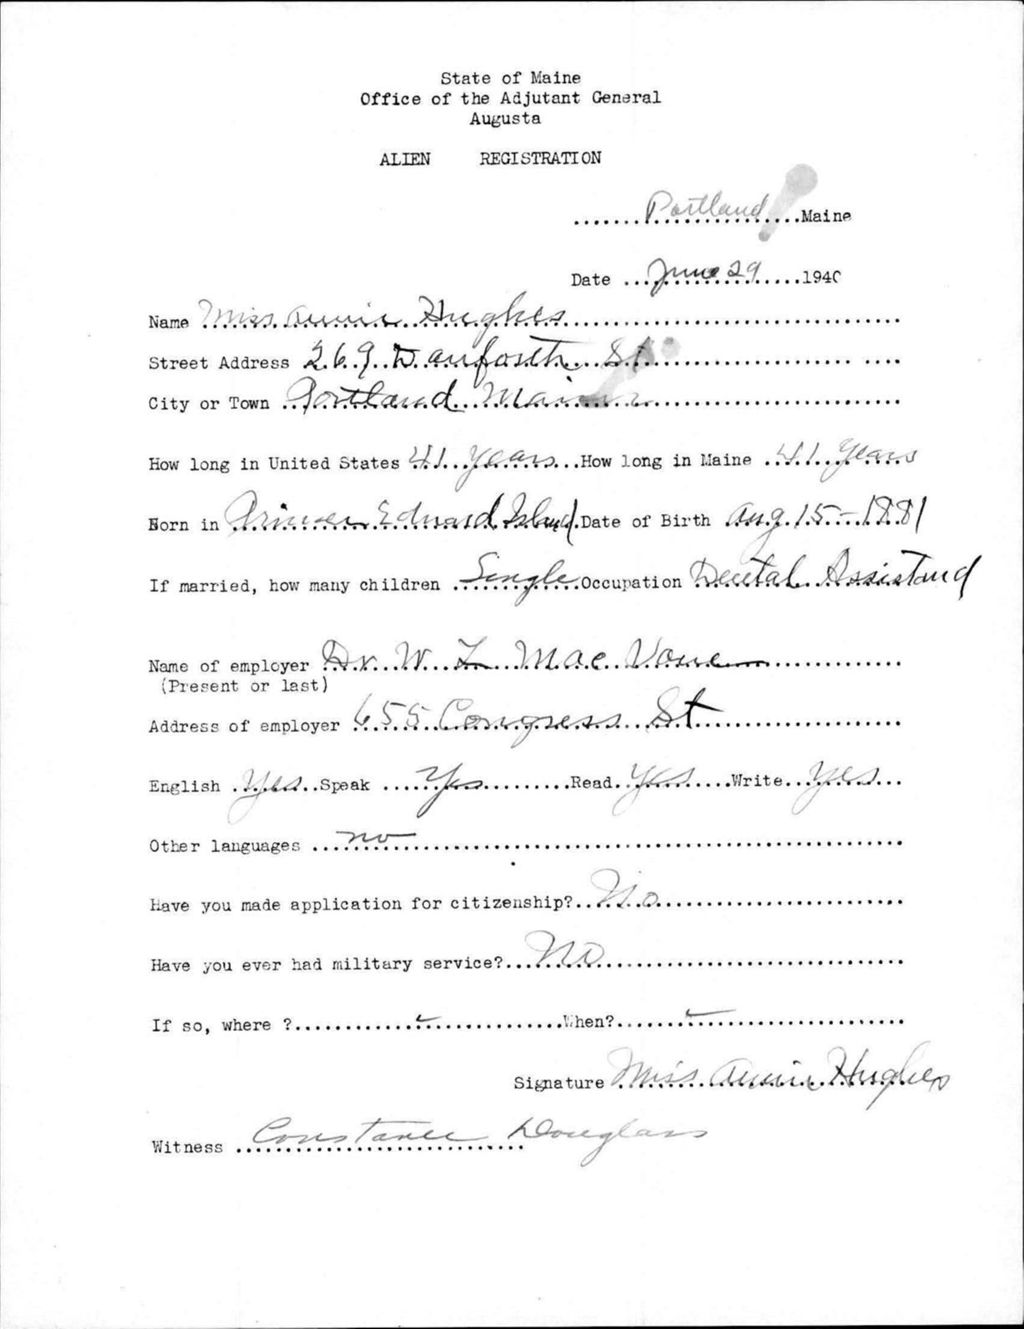 State of Maine
Office of the Adjutant General
Augusta
ALIEN REGISTRATION
Portland Maine
Date June 29 1940
Name Miss Annie Hughes
Street Address 269 Danforth St
City or Town Portland Maine
How long in United States 41 years How long in Maine 41 years
Born in Prince Edward Island Date of Birth Aug. 15-1881
If married, how many children Single Occupation Dental Assistant
Name of employer Dr. W. L. Mac Vane
(Present or last)
Address of employer 655 Congress St
English Yes Speak Yes Read Yes Write Yes
Other languages no
Have you made application for citizenship? No
Have you ever had military service? No
If so, where ? When?
Signature Miss Annie Hughes
Witness Constance Douglass